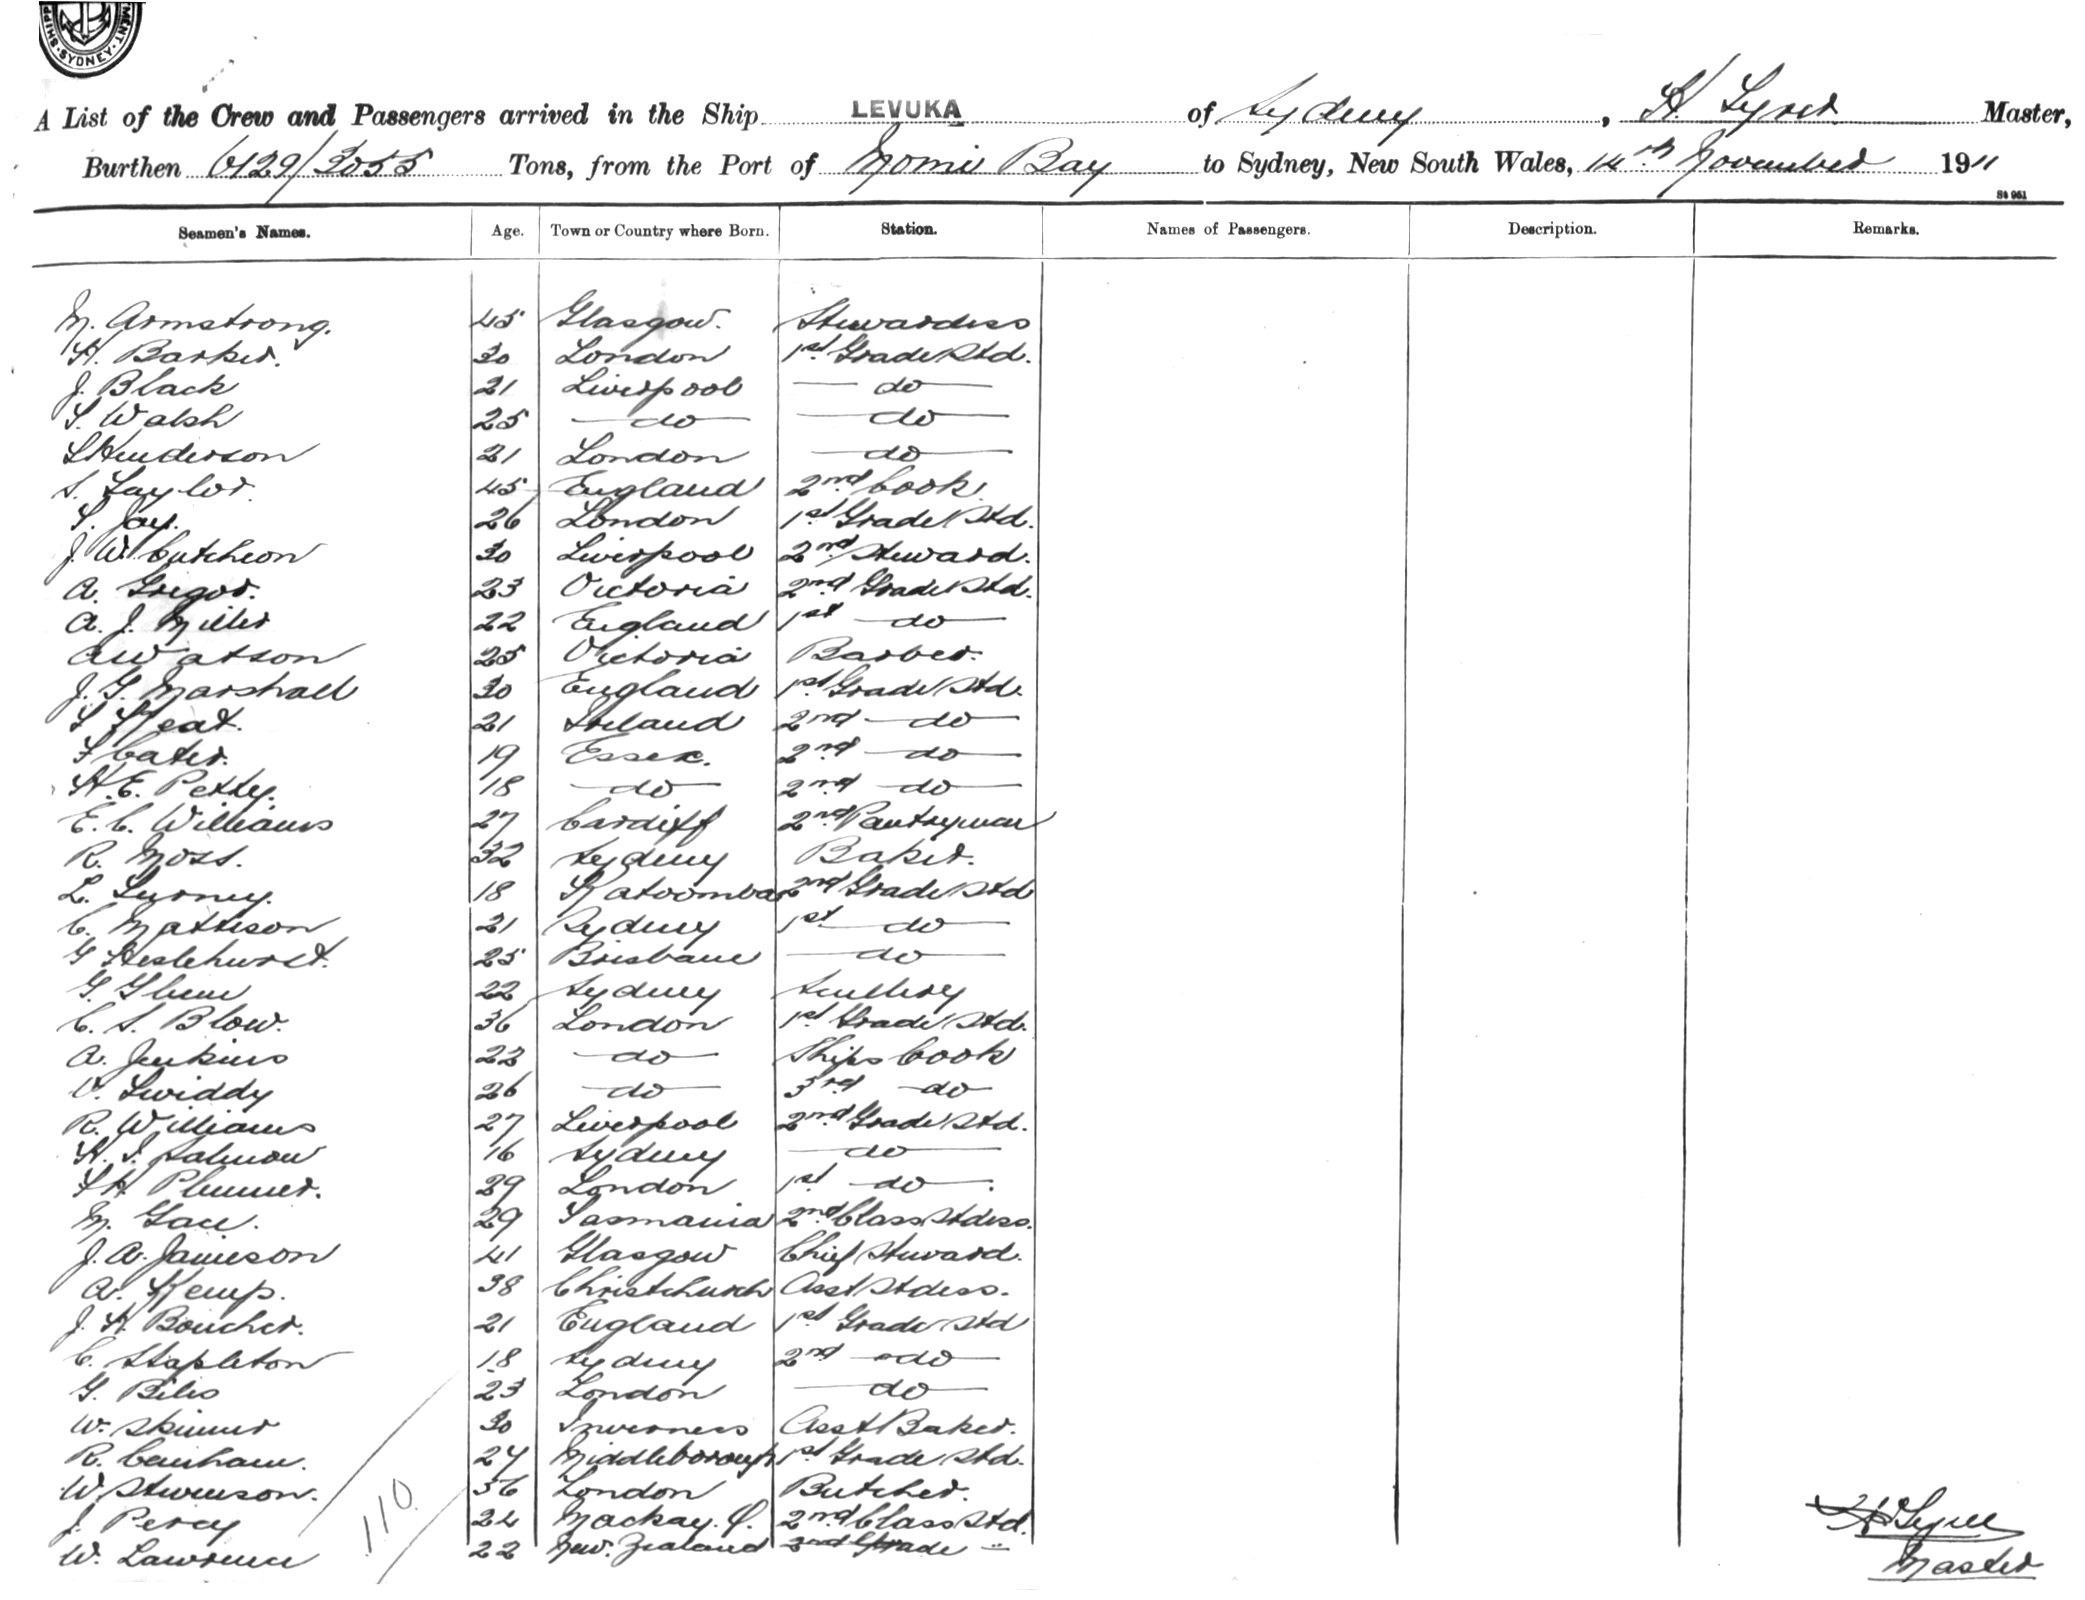 SHIPP MENT SYDNEY
A List of the Crew and Passengers arrived in the Ship LEVUKA of Sydney, H. Master,
Burthen 6129/3055 Tons, from the Port of Momi Bay to Sydney, New South Wales, 14th November 1911
St 951
Seamen's Names. Age. Town or Country where Born. Station. Names of Passengers. Description. Remarks.
M. Armstrong. 45 Glasgow. Stewardess
H. Barker. 30 London 1st Grade Std.
J. Black 21 Liverpool do
S. Walsh 25 do do
Henderson 21 London do
S. Taylor. 45 England 2nd Cook
S. Jay. 26 London 1st Grade Std.
J. W. Cutcheon 30 Liverpool 2nd Steward.
A. Gregor. 23 Victoria 2nd Grade Std.
A. J. Miller 22 England 1st do
A Watson 25 Victoria Barber.
J. G. Marshall 30 England 1st Grade Std.
21 Ireland 2nd do
F Cater. 19 Essex. 2nd do
H. E. Petty. 18 do 2nd do
E. C. Williams 27 Cardiff 2nd Pantryman
R. Moss. 32 Sydney Baker.
L. 18 Katoomba 2nd Grade Std
C. Mattison 21 Sydney 1st do
G Heslehurst. 25 Brisbane do
G. 22 Sydney Scullery
C. S. Blow. 36 London 1st Grade Std.
A. Jenkins 22 do Ships Cook
Swiddy 26 do 3rd do
R. Williams 27 Liverpool 2nd Grade Std.
H. Salmon 16 Sydney do
F H Plummer. 29 London 1st do
M. 29 Tasmania 2nd Class Stdess.
J. A. Jamieson 41 Glasgow Chief Steward.
A. Kemp. 38 Christchurch Asst Stdess.
J. H. Boucher. 21 England 1st Grade Std
C. Stapleton 18 Sydney 2nd do
G. Biles 23 London do
W. Skinner 30 Inverness Asst Baker.
R. Cunham. 24 Middleborough 1st Grade Std.
W Stevenson. 36 London Butcher.
J. Percy 24 Mackay. Q. 2nd Class Std.
W. Lawrence 22 New. Zealand 2nd Grade "
110
Master